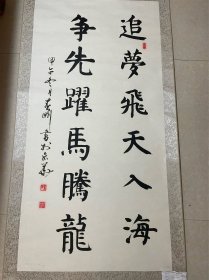 追夢飛天入海
争先躍馬騰龍
甲午